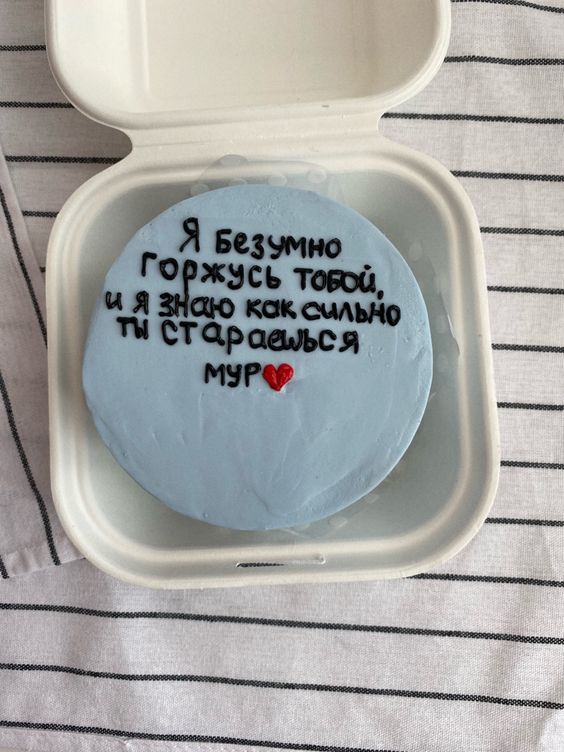 Я безумно
горжусь тобой,
и я знаю как сильно
ты стараешься
мур